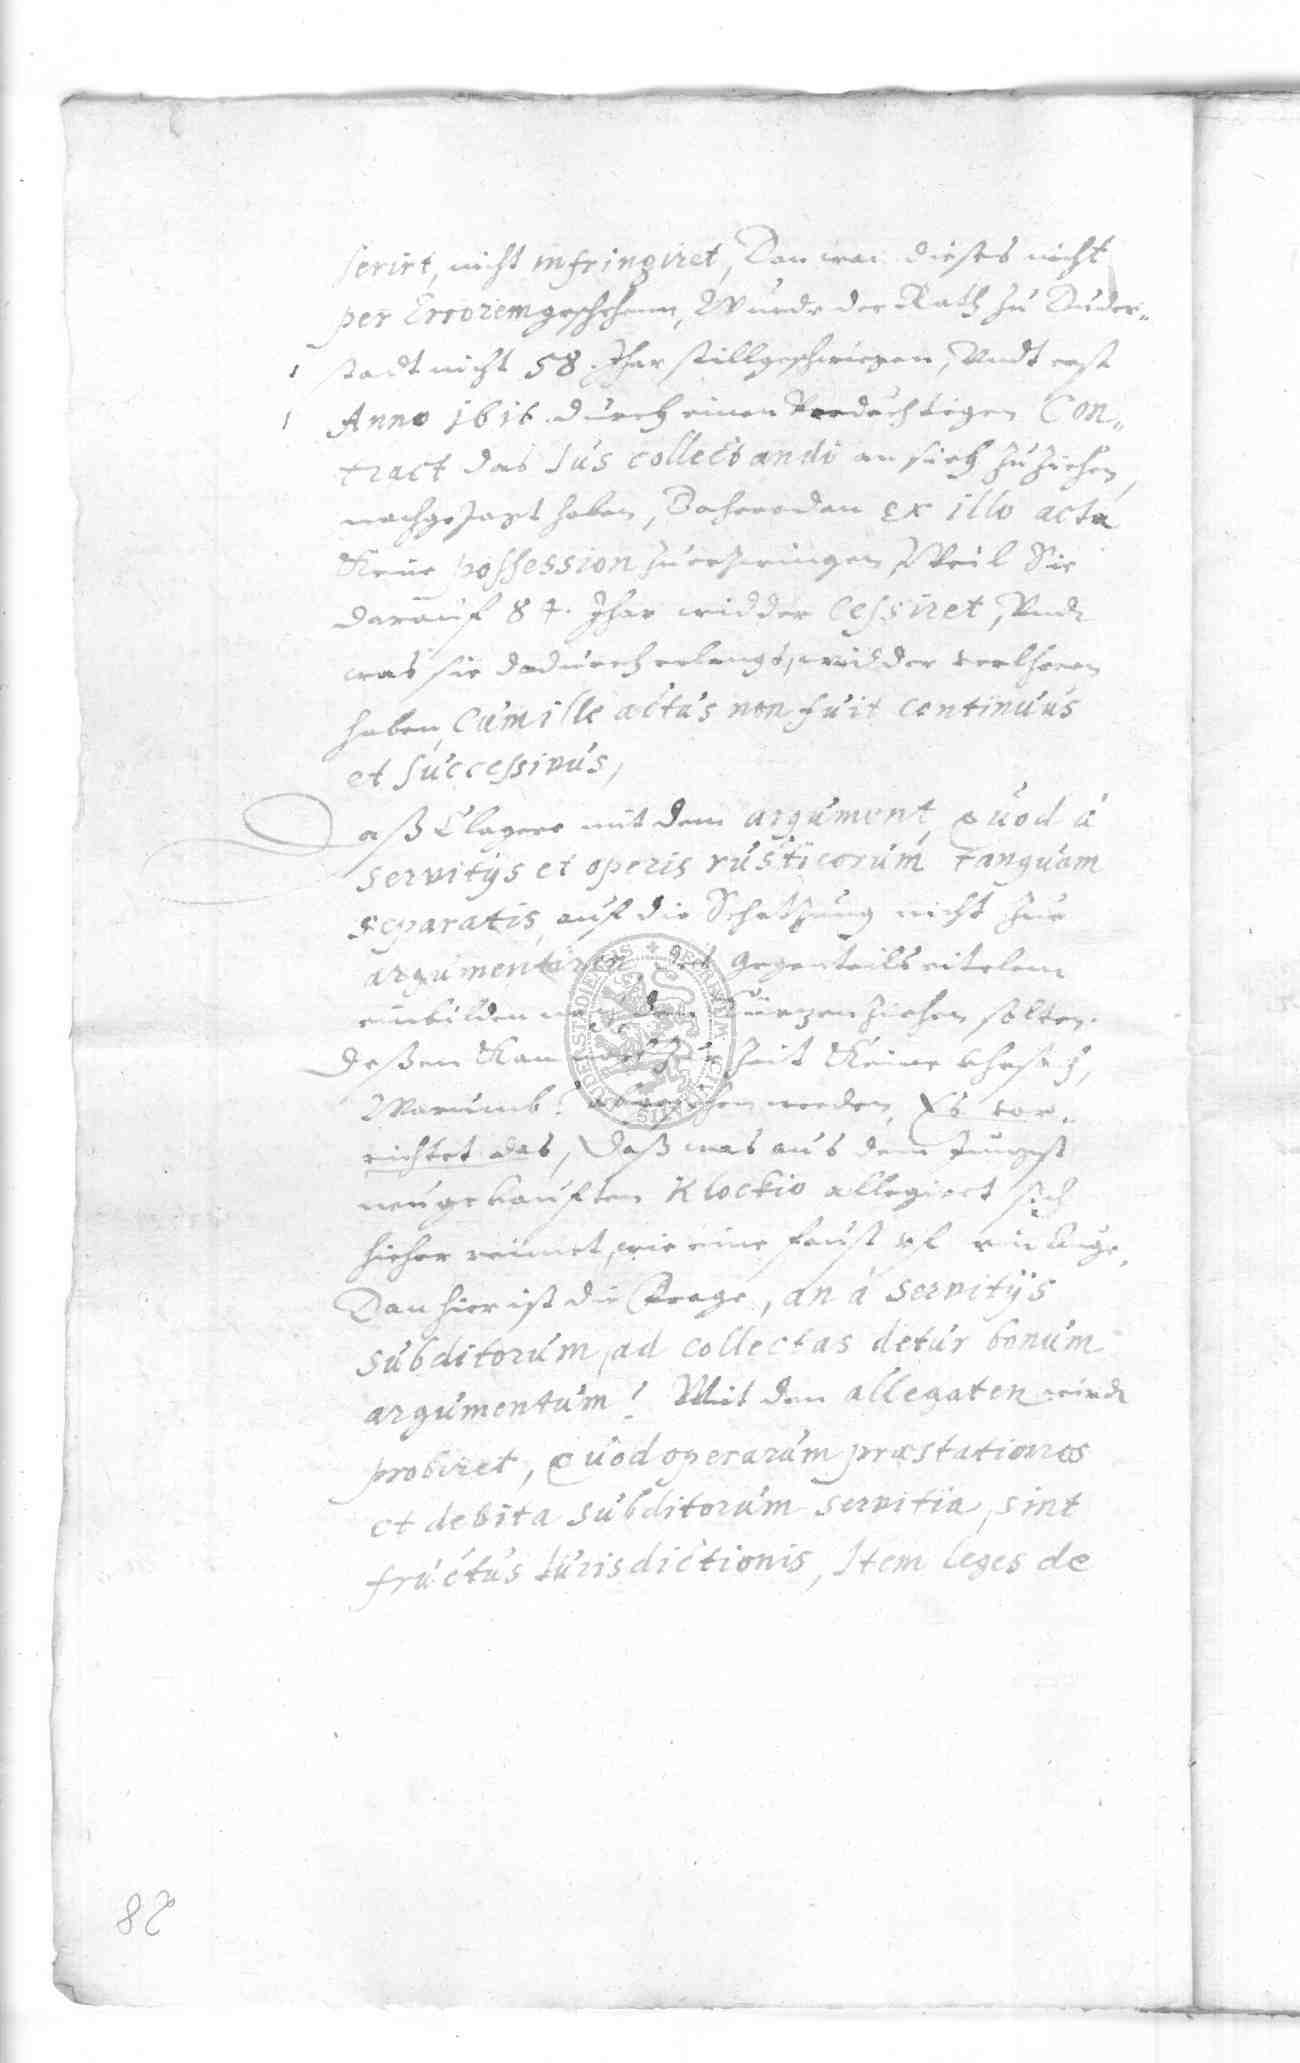 serirt, nicht infringiret, Dan wan dieses nicht
per Errorem geschehenn, Wurde der Rath zu Duder-
stadt nicht 58. Jhar stillgeschwiegen, Undt erst
Anno 1616 durch einen verdechtigen Con-
tract das Jus collectandi an sich zu ziehen,
nachgejagt haben, Daher dan ex illo actu
Keine possession zu erzwingen, Weil Sie
darauf 84. Jhar widder cessiret, Undt
was sie dadurch erlangt, widder verlhoren
haben, Cum ille actus non fuit continuus
et successivus,
Daß Clagere mit dem argument, quod à
servitijs et operis rusticorum tanquam
separatis, auf die Schatzung nicht zue
argumentiren, Gegenteils eitelem
einbilden nach den Kürtzen ziehen solten.
Deßen Kan noch zur Zeit Keine uhrsach,
Warumb? werden, Es ver-
richtet das, Daß was aus dem Jungst
neugekauften Klockio allegirt sich
hieher reimet, wie eine faust uf ein Auge,
Dan hier ist die Frage, an à servitijs
subditorum, ad collectas detur bonum
argumentum? Mit den allegaten wirdt
probiret, quod operarum præstationes
et debita subditorum servitia, sint
fructus Jurisdictionis, Item leges de
SIGILLUM CIVITATIS DUDERSTADIENSIS
82